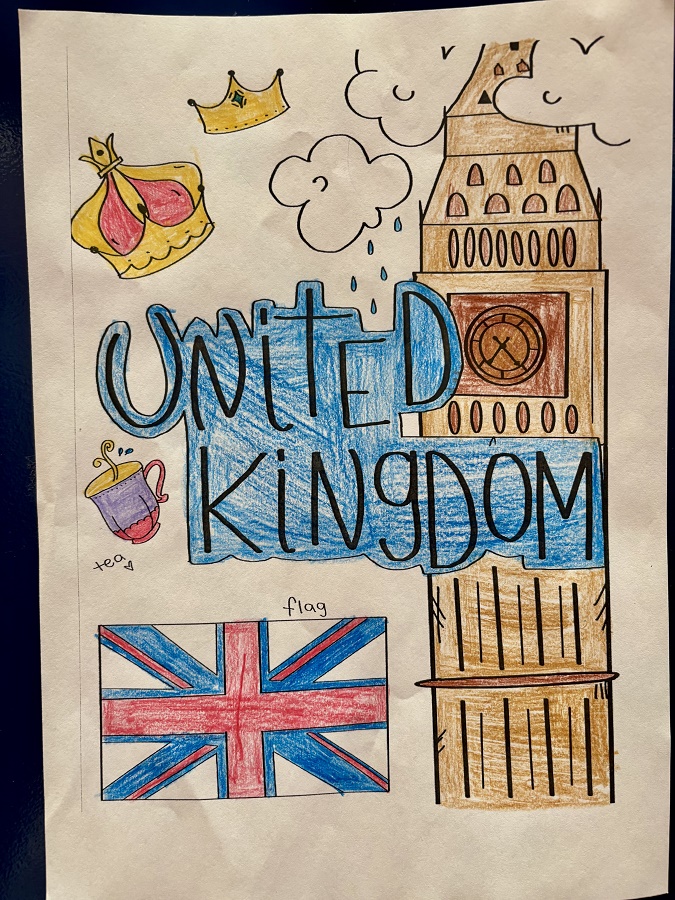 UNiTED
KiNgDOM
tea
flag